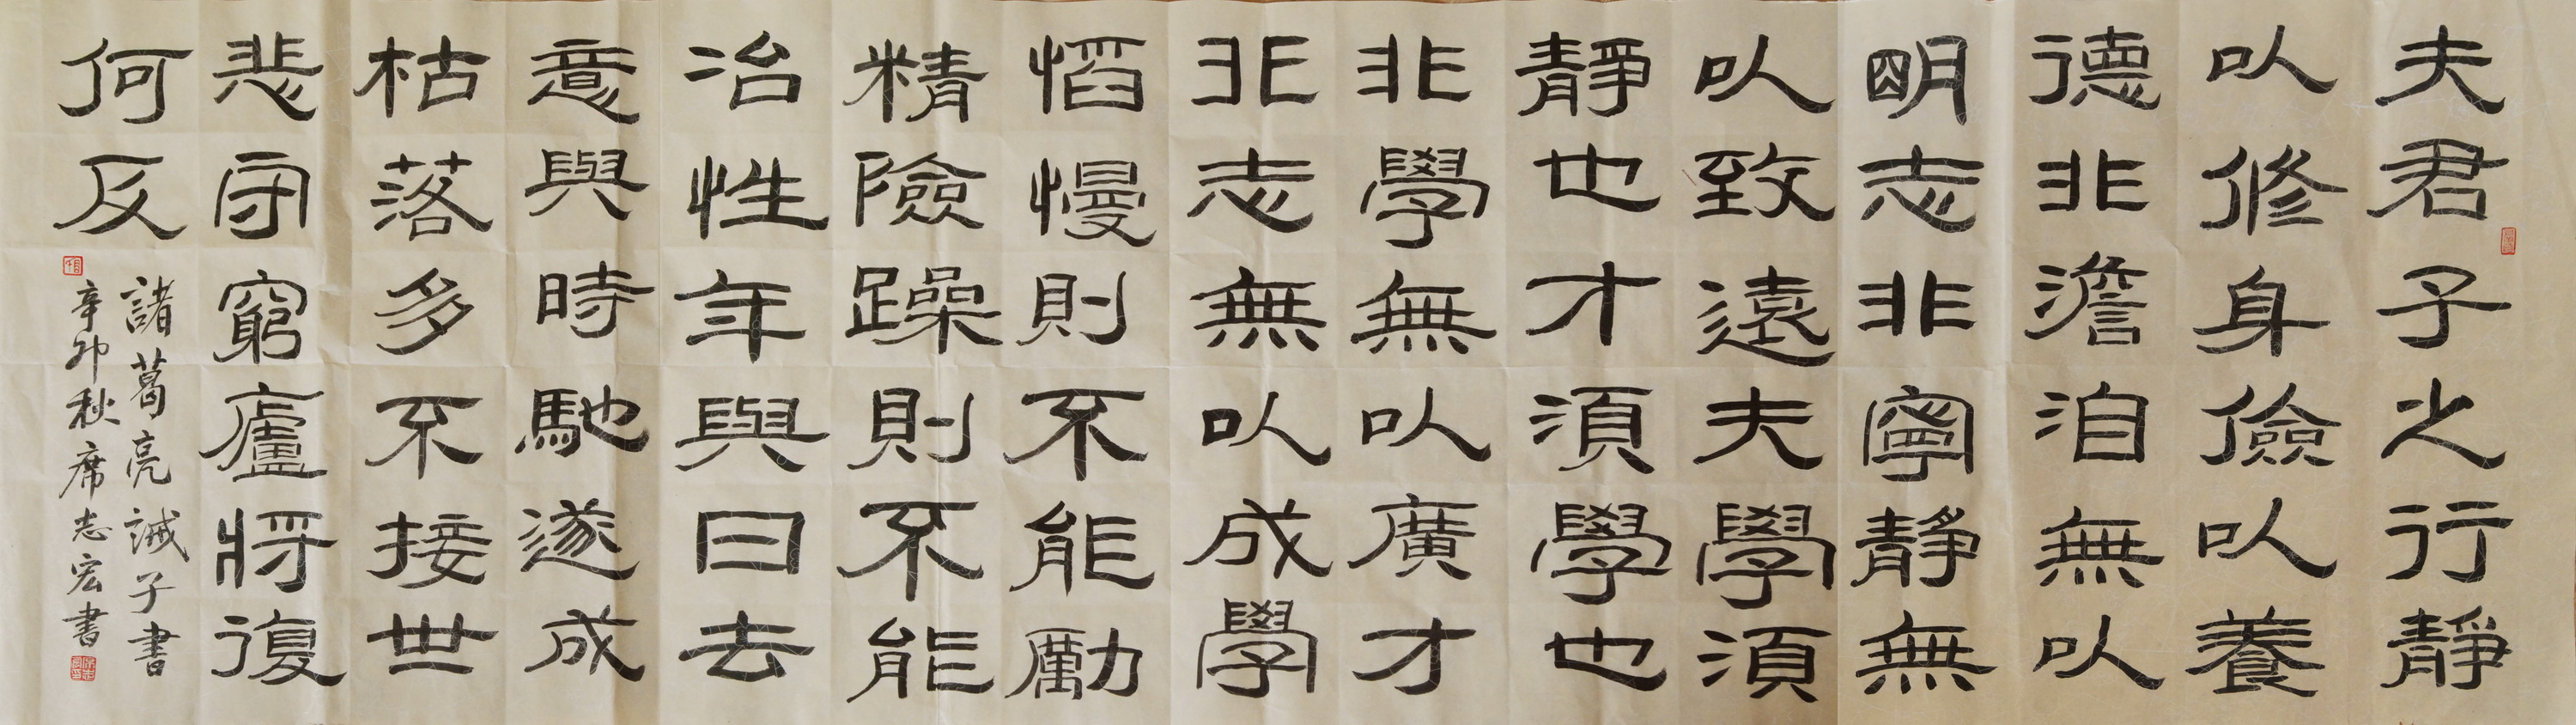 夫君子之行靜
以修身儉以養
德非澹泊無以
明志非寧靜無
以致遠夫學須
靜也才須學也
非學無以廣才
非志無以成學
慆慢則不能勵
精險躁則不能
冶性年與日去
意與時馳遂成
枯落多不接世
悲守窮廬將復
何反
諸葛亮誡子書
辛卯秋席志宏書